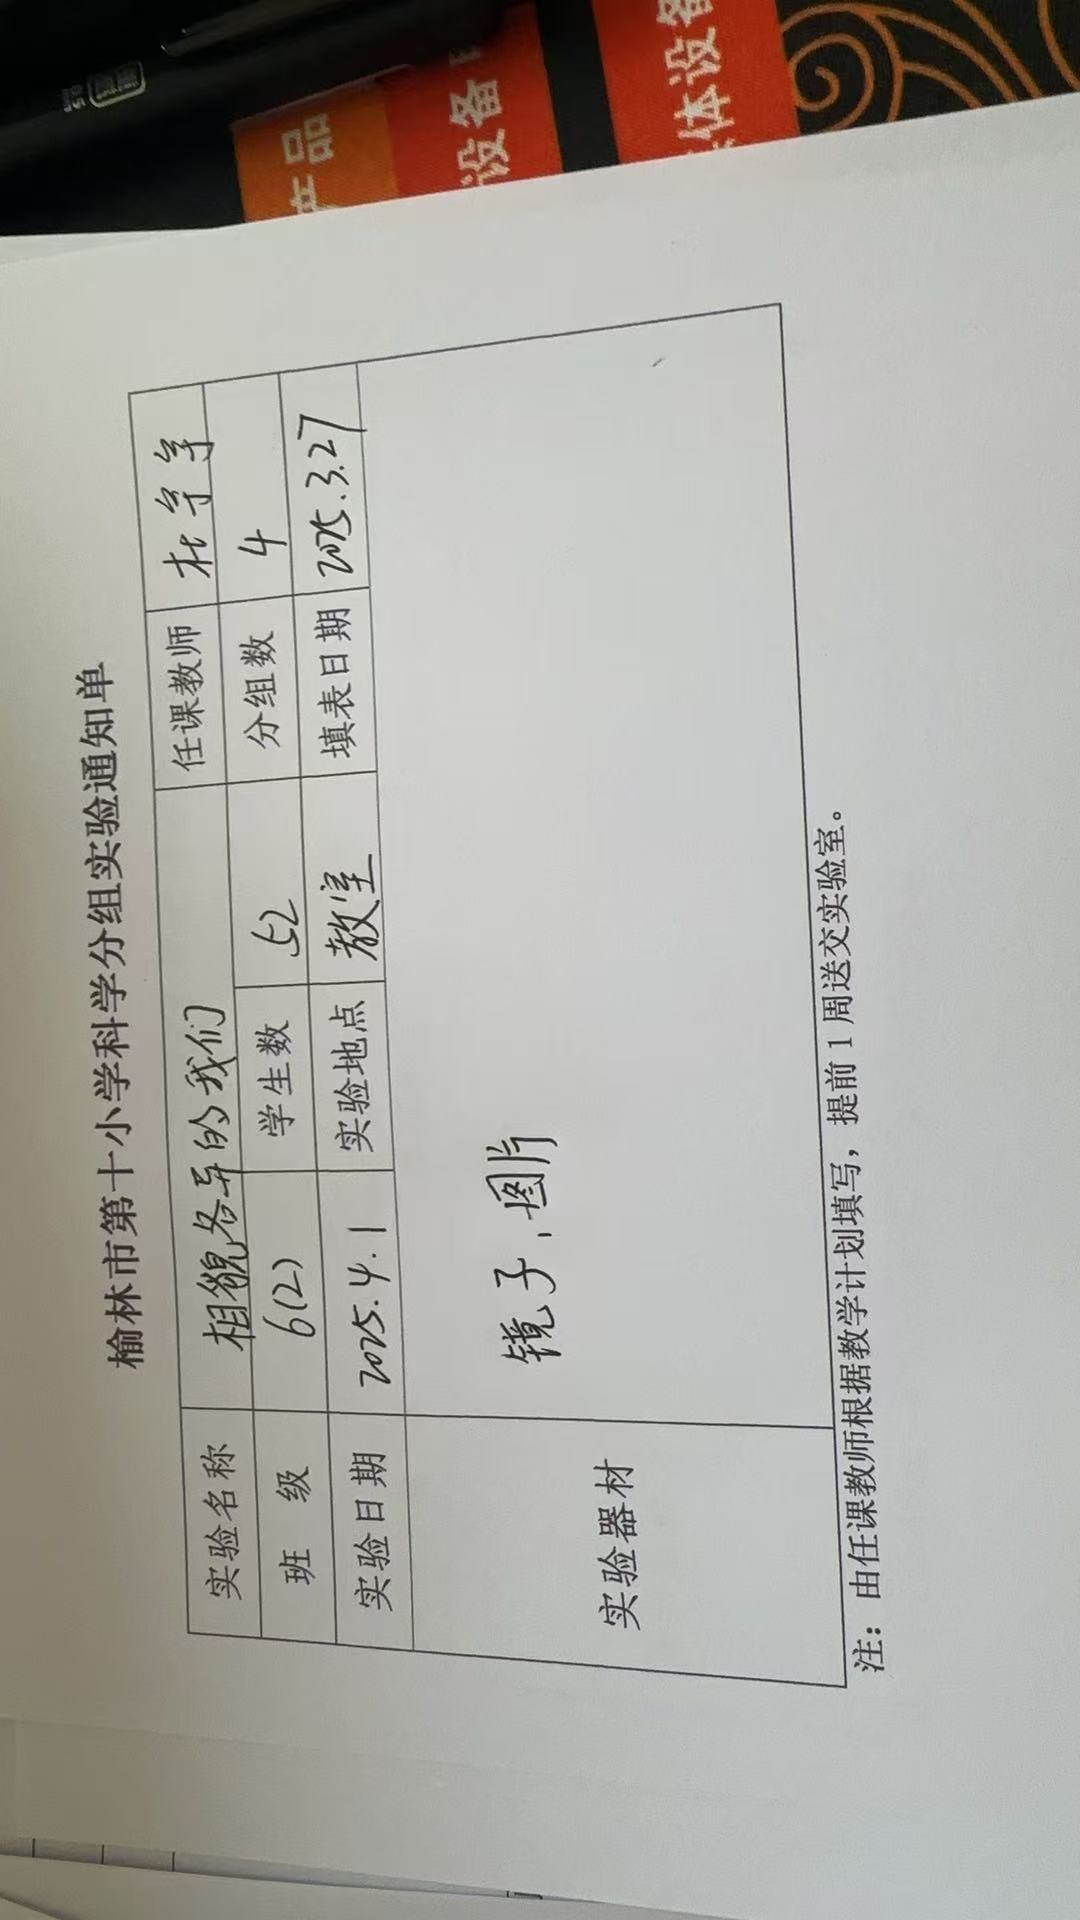 产品
设备
体设备
榆林市第十小学科学分组实验通知单
实验名称 相貌各异的我们 任课教师 杜
班 级 6(2) 学生数 52 分组数 4
实验日期 2025.4.1 实验地点 教室 填表日期 2025.3.27
实验器材 镜子、图片
注：由任课教师根据教学计划填写，提前1周送交实验室。